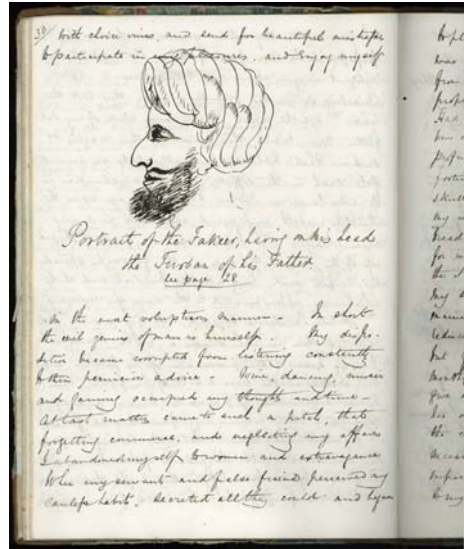 30
with choice wines, and send for beautiful mistresses
to participate in my pleasures, and enjoy myself
Portrait of the Fakeer, having on his head
the Turban of his Father
see page 28
in the most voluptuous manner - In short
the evil genius of man is himself. My dispo-
sition became corrupted from listening constantly
to their pernicious advice - Wine, dancing, music
and gaming occupied my thoughts and time -
At last matters came to such a pitch, that
forgetting commerce, and neglecting my affairs
I abandoned myself to women and extravagance
When my servants and false friends perceived my
careless habit, secreted all they could and began